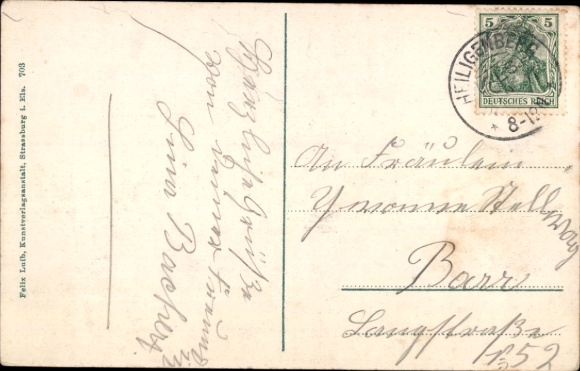 Felix Luib, Kunstverlagsanstalt, Strassburg i. Els. 703
Herzliche Grüße
von deiner Freund
Lina Bachert
5 5
DEUTSCHES REICH
HEILIGENBERG
* 8-
An Fräulein
Yvonne Stell
Barr
Langstraße
№ 52